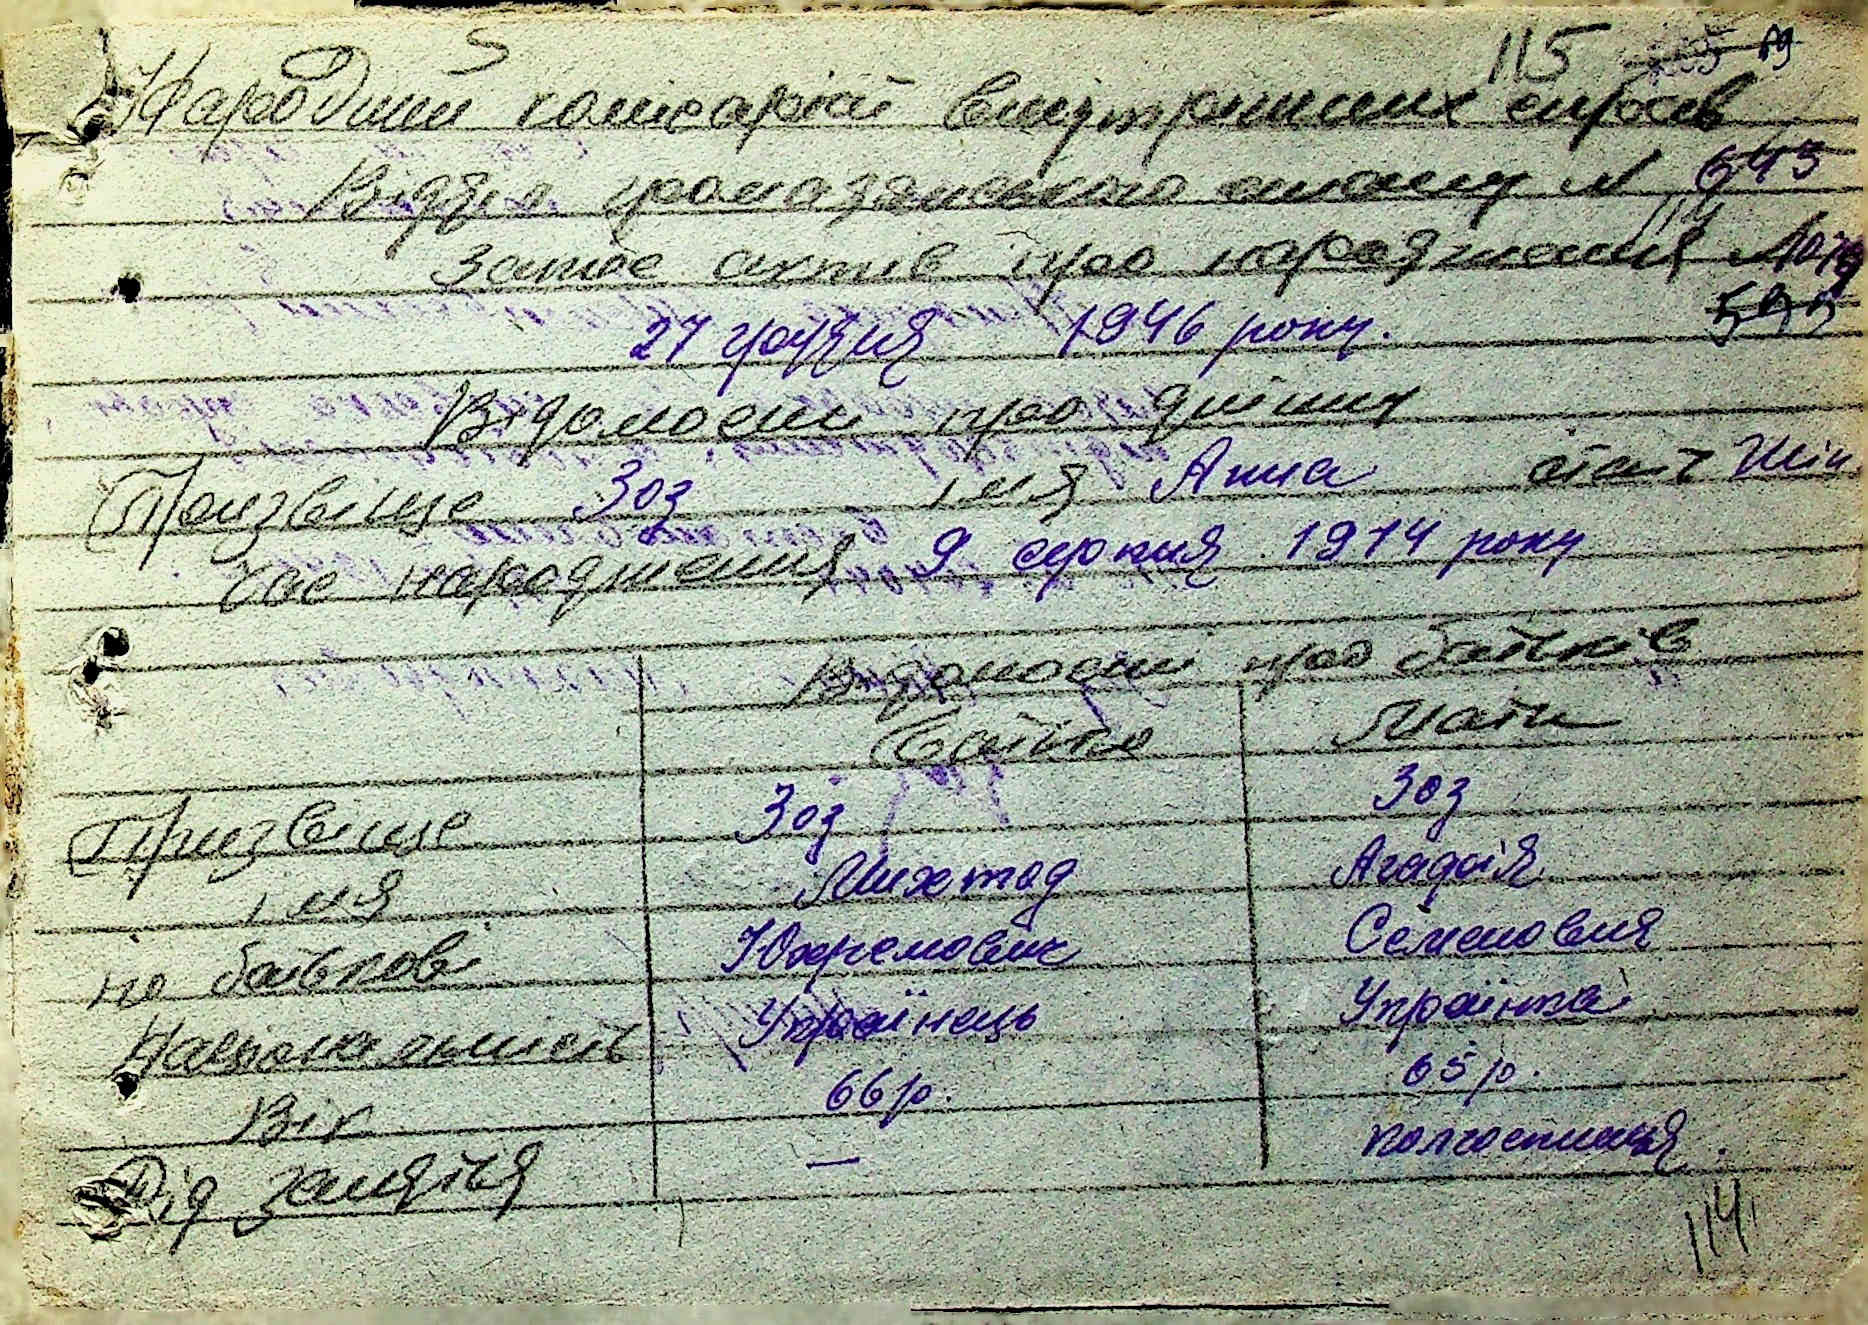 115
Народний комісаріат внутрішніх справ
Відділ громадянського стану № 643
Запис актів про народження №
27 грудня 1946 року.
599
Відомости про дітних
Призвище Зоз імя Анна стать Жін
Час народження 9 серпня 1914 року
Відомости про батьків
Батько Мати
Призвіще Зоз Зоз
імя Михтод Агафія
по батькові Юхремович Семеновня
Національність Українець Українка
Вік 66 р. 65 р.
Рід заняття — колгоспниця.
114